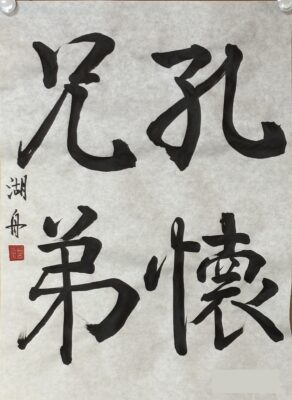 孔懷
兄弟
湖舟